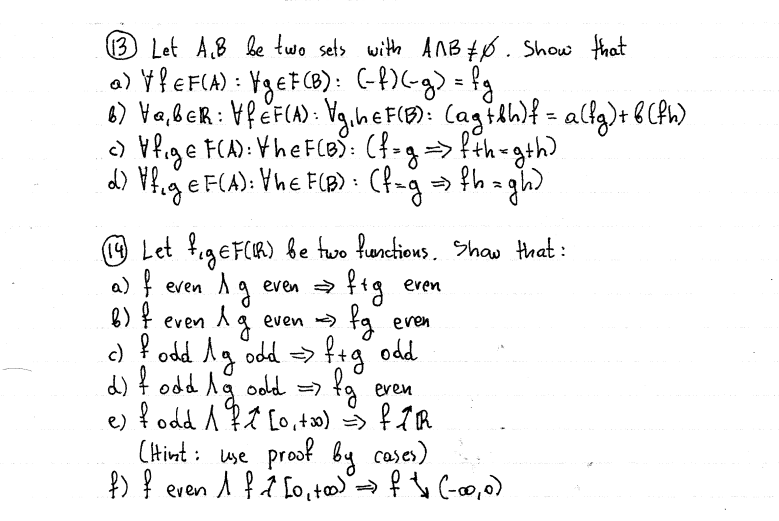 ⑬ Let A,B be two sets with A∩B≠∅. Show that
a) ∀f∈F(A): ∀g∈F(B): (-f)(-g) = fg
b) ∀a,b∈ℝ: ∀f∈F(A): ∀g,h∈F(B): (ag+bh)f = a(fg)+b(fh)
c) ∀f,g∈F(A): ∀h∈F(B): (f=g ⇒ f+h=g+h)
d) ∀f,g∈F(A): ∀h∈F(B): (f=g ⇒ fh=gh)
⑭ Let f,g∈F(ℝ) be two functions. Show that:
a) f even ∧ g even ⇒ f+g even
b) f even ∧ g even ⇒ fg even
c) f odd ∧ g odd ⇒ f+g odd
d) f odd ∧ g odd ⇒ fg even
e) f odd ∧ f↑[0,+∞) ⇒ f↑ℝ
(Hint: use proof by cases)
f) f even ∧ f↑[0,+∞) ⇒ f↓(-∞,0)